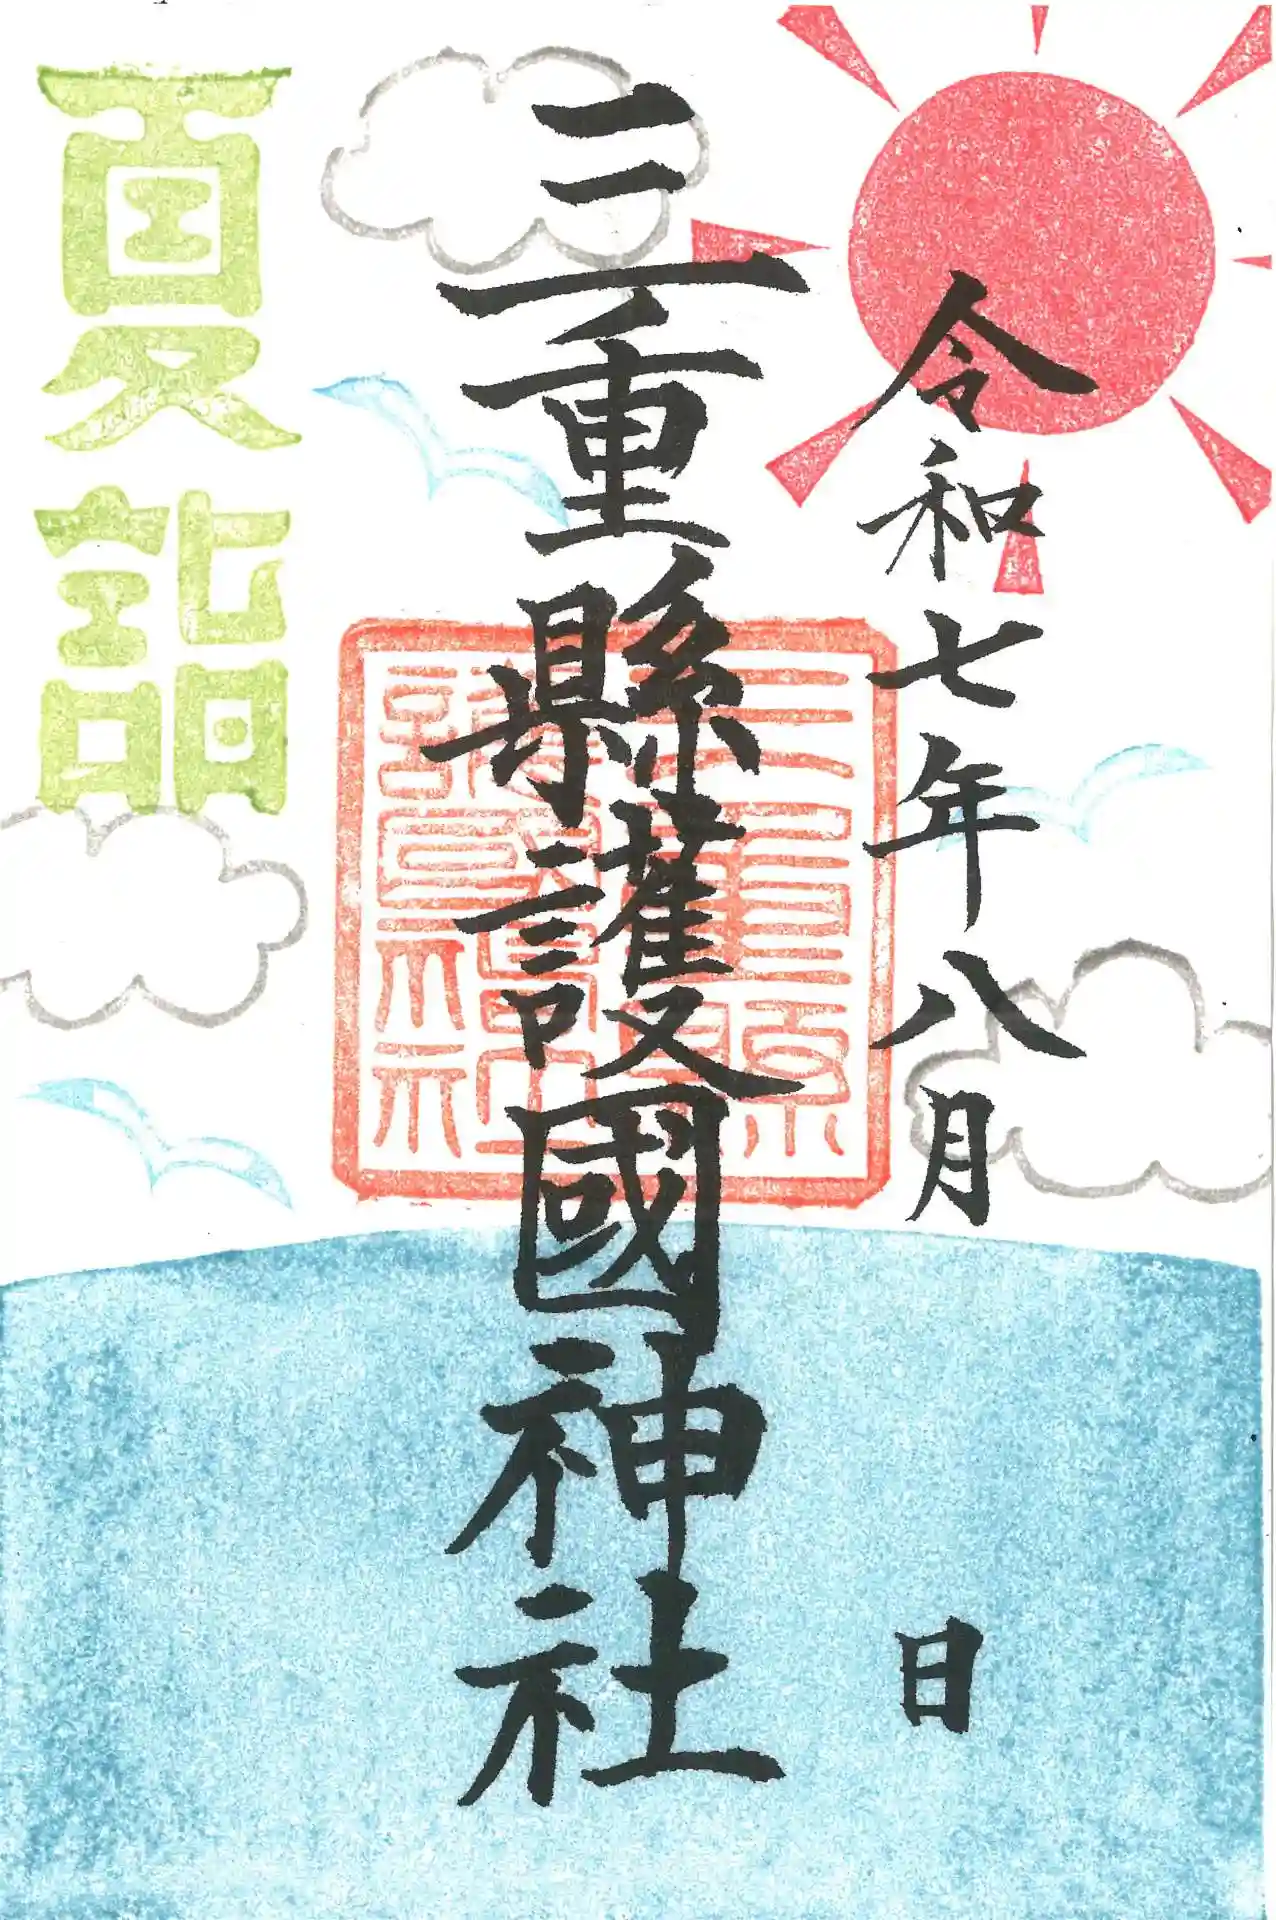 令和七年八月 日
三重縣護國神社
三重縣護國神社
夏詣